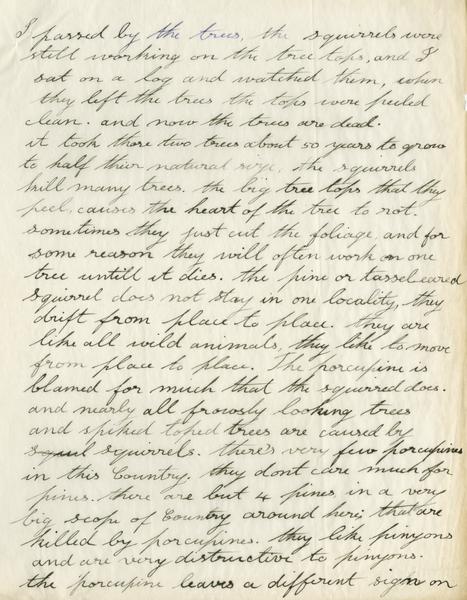 I passed by the trees, the squirrels were
still working on the tree tops, and I
sat on a log and watched them, when
they left the trees the tops were peeled
clean. and now the trees are dead.
it took those two trees about 50 years to grow
to half their natural size, the squirrels
kill many trees. the big tree tops that they
peel, causes the heart of the tree to rot.
sometimes they just cut the foliage, and for
some reason they will often work on one
tree untill it dies. the pine or tassel eared
squirrel does not stay in one locality, they
drift from place to place. they are
like all wild animals, they like to move
from place to place. The porcupine is
blamed for much that the squirred does.
and nearly all frowsly looking trees
and spiked toped trees are caused by
squirrels. there's very few porcupines
in this Country. they dont care much for
pines. there are but 4 pines in a very
big scope of Country around here, that are
killed by porcupines. they like pinyons
and are very distructive to pinyons.
the porcupine leaves a different sign on